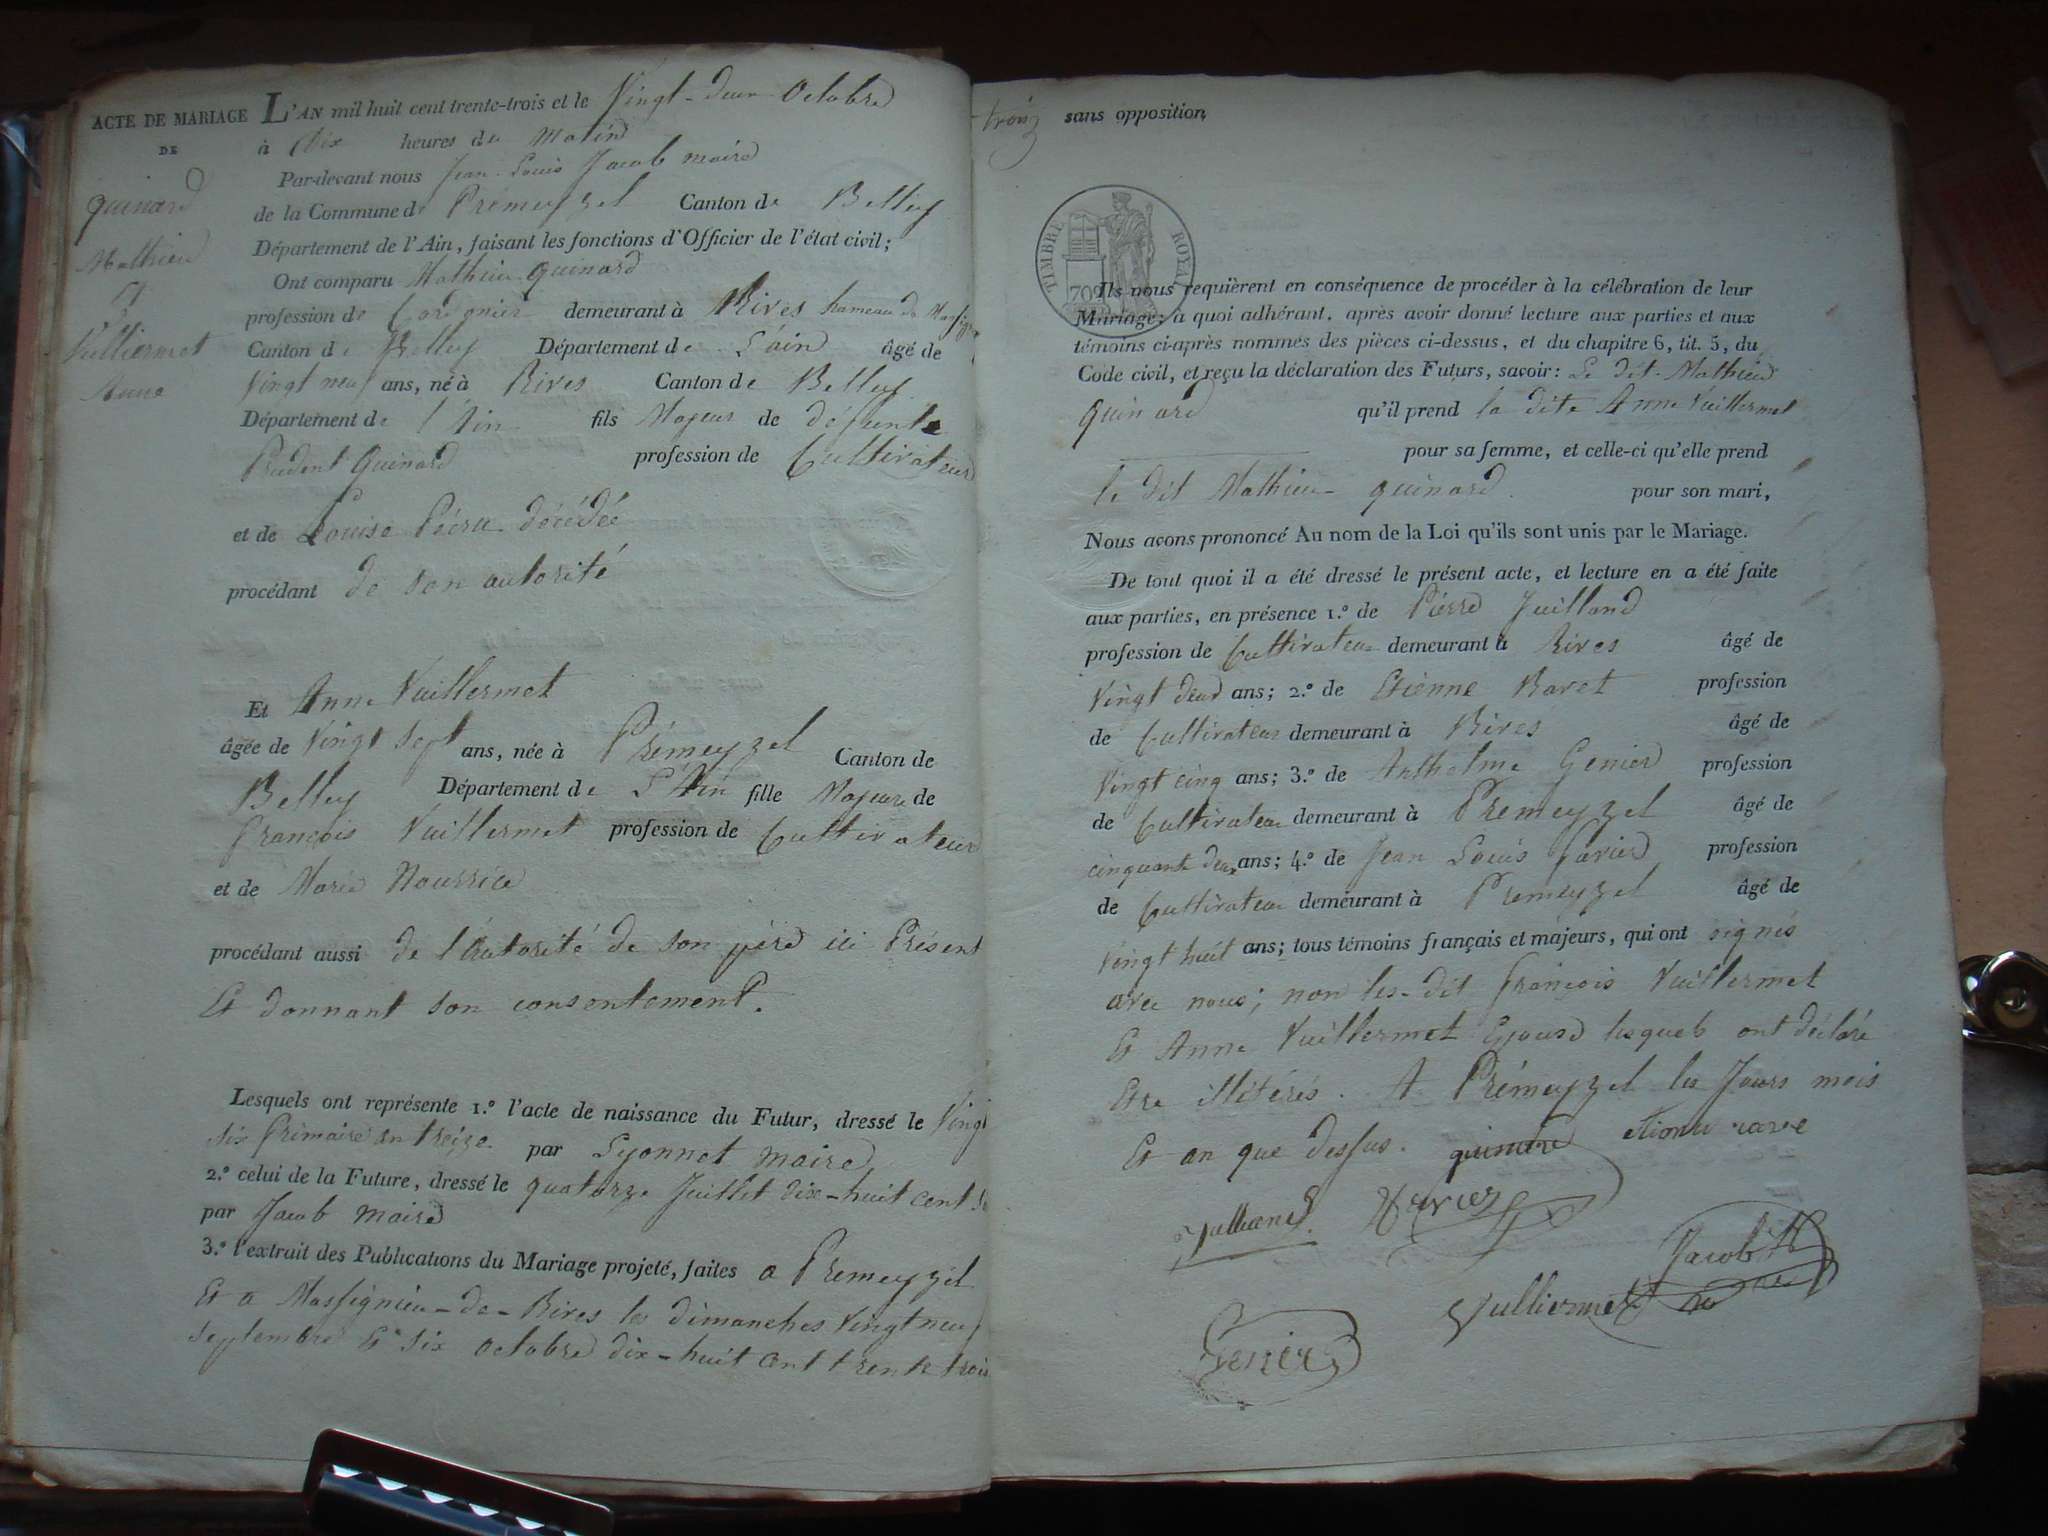 ACTE DE MARIAGE
DE
quinard
Mathieu
Et
Vulliermet
Anne
L'AN mil huit cent trente-trois et le Vingt-deux Octobre
à Dix heures du Matin
Par-devant nous Jean-Louis Jacob maire
de la Commune de Prémeyzel Canton de Belley
Département de l'Ain, faisant les fonctions d'Officier de l'état civil;
Ont comparu Mathieu quinard
profession de Cordonier demeurant à Rives hameau de
Canton de Belley Département de L'ain âgé de
Vingt neuf ans, né à Rives Canton de Belley
Département de l'Ain fils Majeur de défunt
Prudent Quinard profession de Cultivateur
et de Louise décédée
procédant de son autorité
Et Anne Vuillermet
âgée de Vingt Sept ans, née à Prémeyzel Canton de
Belley Département de L'Ain fille Majeure de
François Vuillermet profession de Cultivateur
et de Marie Nourrice
procédant aussi de l'Autorité de son père ici Présent
Et donnant son consentement.
Lesquels ont représente 1.º l'acte de naissance du Futur, dressé le Vingt
six frimaire an treize par Lyonnet maire
2.º celui de la Future, dressé le quatorze Juillet dix-huit cent
par Jacob maire
3.º l'extrait des Publications du Mariage projeté, faites a Premeyzel
Et a Massignieu-de-Rives les dimanches Vingt neuf
Septembre Et six Octobre dix-huit cent trente trois
trois sans opposition
TIMBRE ROYAL
Ils nous requièrent en conséquence de procéder à la célébration de leur
Mariage; à quoi adhérant, après avoir donné lecture aux parties et aux
témoins ci-après nommés des pièces ci-dessus, et du chapitre 6, tit. 5, du
Code civil, et reçu la déclaration des Futurs, savoir: Le dit Mathieu
quinard qu'il prend la dite Anne Vuillermet
pour sa femme, et celle-ci qu'elle prend
le dit Mathieu quinard pour son mari,
Nous avons prononcé Au nom de la Loi qu'ils sont unis par le Mariage.
De tout quoi il a été dressé le présent acte, et lecture en a été faite
aux parties, en présence 1.º de Pierre Juilland
profession de Cultivateur demeurant à Rives âgé de
Vingt deux ans; 2.º de Etienne Ravet profession
de Cultivateur demeurant à Rives âgé de
Vingt cinq ans; 3.º de Anthelme Genier profession
de Cultivateur demeurant à Premeyzel âgé de
cinquante deux ans; 4.º de Jean Louis Favier profession
de Cultivateur demeurant à Premeyzel âgé de
Vingt huit ans; tous témoins français et majeurs, qui ont signés
avec nous; non les-dit François Vuillermet
Et Anne Vuillermet Epouse lesquels ont déclaré
Etre illétérés. A Prémeyzel les Jours mois
Et an que dessus. etienne ravé
Favier
Jacob
Vulliermet
Genier